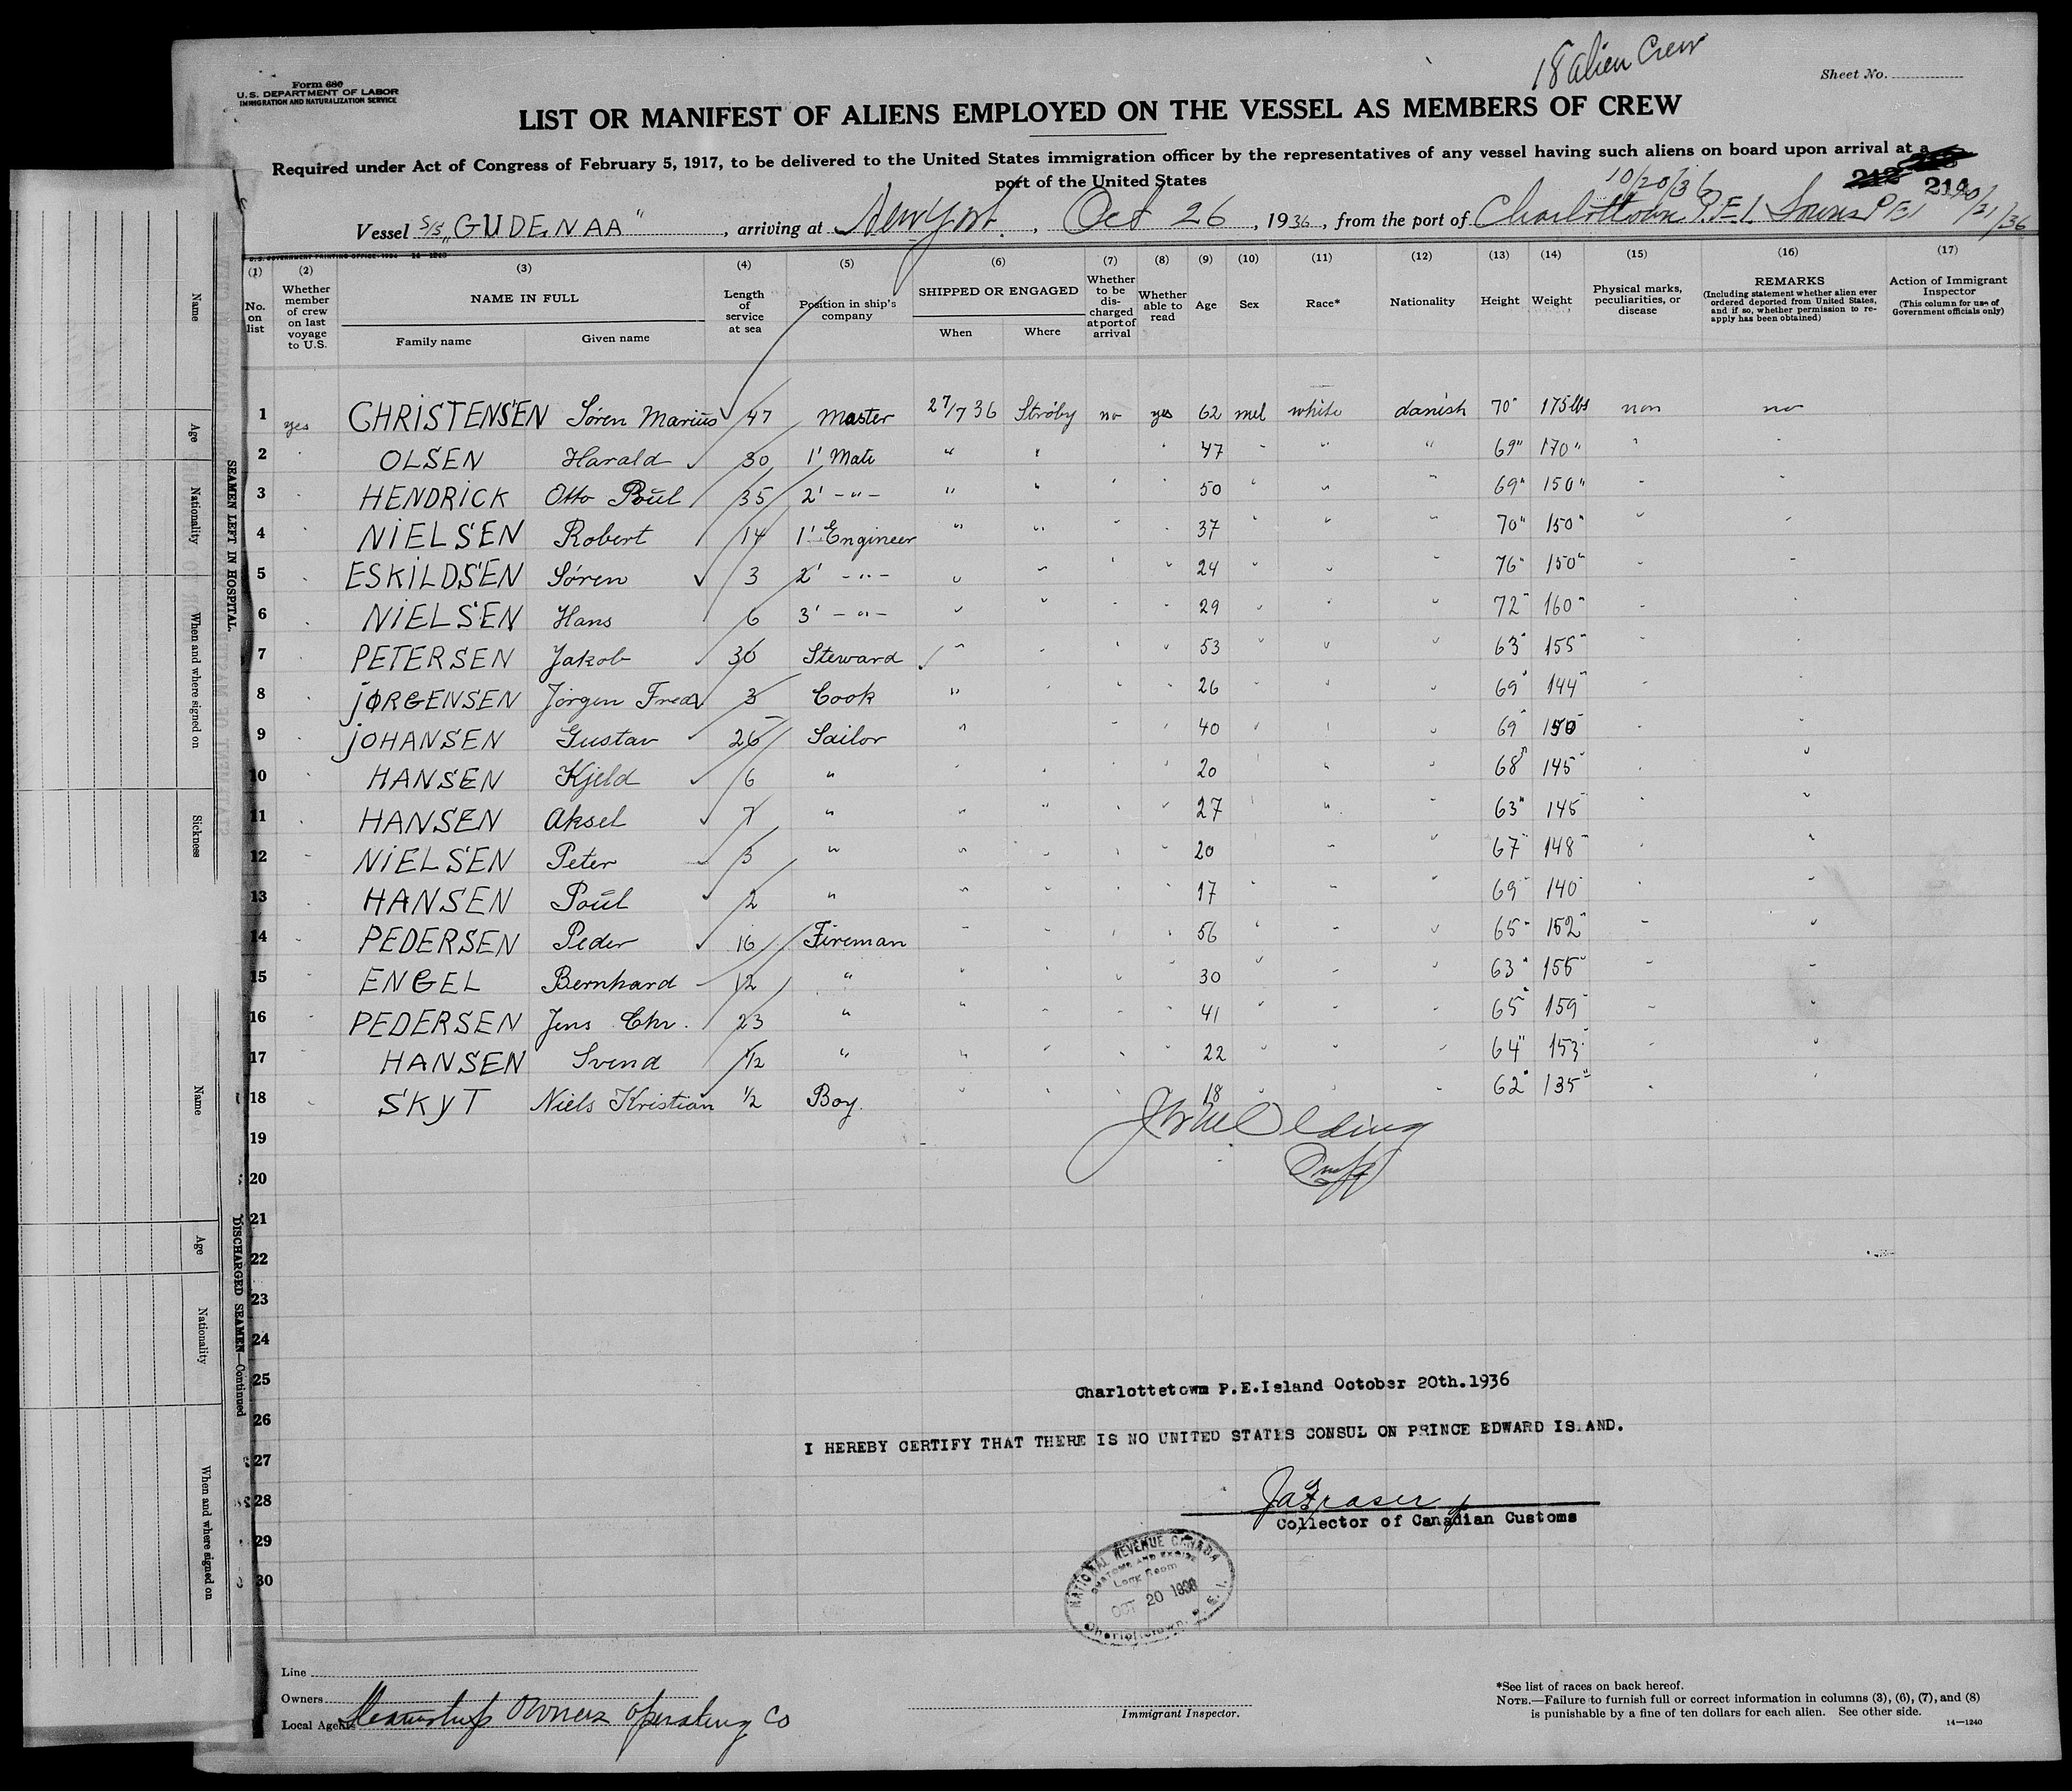 18 alien Crew
Form 680
U.S. DEPARTMENT OF LABOR
IMMIGRATION AND NATURALIZATION SERVICE
Sheet No.
LIST OR MANIFEST OF ALIENS EMPLOYED ON THE VESSEL AS MEMBERS OF CREW
Required under Act of Congress of February 5, 1917, to be delivered to the United States immigration officer by the representatives of any vessel having such aliens on board upon arrival at a
port of the United States
10/20/36 212 214
Vessel S/S „GUDENAA", arriving at New York, Oct 26, 1936, from the port of Charlottetown P.E.I. Souris P E I 10/21/36
U.S. GOVERNMENT PRINTING OFFICE: 1934 14—1240
(1) (2) (3) (4) (5) (6) (7) (8) (9) (10) (11) (12) (13) (14) (15) (16) (17)
No. on list
Whether member of crew on last voyage to U.S.
NAME IN FULL
Family name
Given name
Length of service at sea
Position in ship's company
SHIPPED OR ENGAGED
When
Where
Whether to be discharged at port of arrival
Whether able to read
Age
Sex
Race*
Nationality
Height
Weight
Physical marks, peculiarities, or disease
REMARKS
(Including statement whether alien ever ordered deported from United States, and if so, whether permission to reapply has been obtained)
Action of Immigrant Inspector
(This column for use of Government officials only)
1 yes CHRISTENSEN Sören Marius 47 Master 27/7 36 Ströby no yes 62 mel white danish 70" 175 lbs non no
2 OLSEN Harald 30 1' Mate " " 47 " " 69" 170 "
3 HENDRICK Otto Poul 35 2' - " - " " 50 " " 69" 150 "
4 NIELSEN Robert 14 1' Engineer " " 37 " " 70" 150 "
5 ESKILDSEN Sören 3 2' - " - " " 24 " " 76" 150 "
6 NIELSEN Hans 6 3' - " - " " 29 " " 72" 160 "
7 PETERSEN Jakob 36 Steward " " 53 " " 63" 155 "
8 JØRGENSEN Jörgen Fred 3 Cook " " 26 " " 69" 144 "
9 JOHANSEN Gustav 26 Sailor " 40 " " 69 150
10 HANSEN Kjeld 6 " " " 20 " " 68" 145
11 HANSEN Aksel 7 " " " 27 " " 63" 145
12 NIELSEN Peter 3 " " " 20 " " 67" 148 "
13 HANSEN Poul 2 " " " 17 " " 69 140
14 PEDERSEN Peder 16 Fireman " " 56 " " 65" 152 "
15 ENGEL Bernhard 12 " " " 30 " " 63" 155 "
16 PEDERSEN Jens Chr. 23 " " " 41 " " 65" 159 "
17 HANSEN Svend 1/2 " " " 22 " " 64" 153
18 SKYT Niels Kristian 1/2 Boy. " " 18 " " 62" 135 "
19
20
21
22
23
24
25
26
27
28
29
30
Charlottetown P.E.Island October 20th.1936
I HEREBY CERTIFY THAT THERE IS NO UNITED STATES CONSUL ON PRINCE EDWARD ISLAND.
Collector of Canadian Customs
NATIONAL REVENUE CANADA
CUSTOMS AND EXCISE
Long Room
OCT 20 1936
Charlottetown, P.E.I.
Line
Owners
Local Agents Steamship Owners Operating Co
Immigrant Inspector.
*See list of races on back hereof.
NOTE.—Failure to furnish full or correct information in columns (3), (6), (7), and (8)
is punishable by a fine of ten dollars for each alien. See other side.
14—1240
SEAMEN LEFT IN HOSPITAL.
Name
Age
Nationality
When and where signed on
Sickness
DISCHARGED SEAMEN—Continued
Name
Age
Nationality
When and where signed on